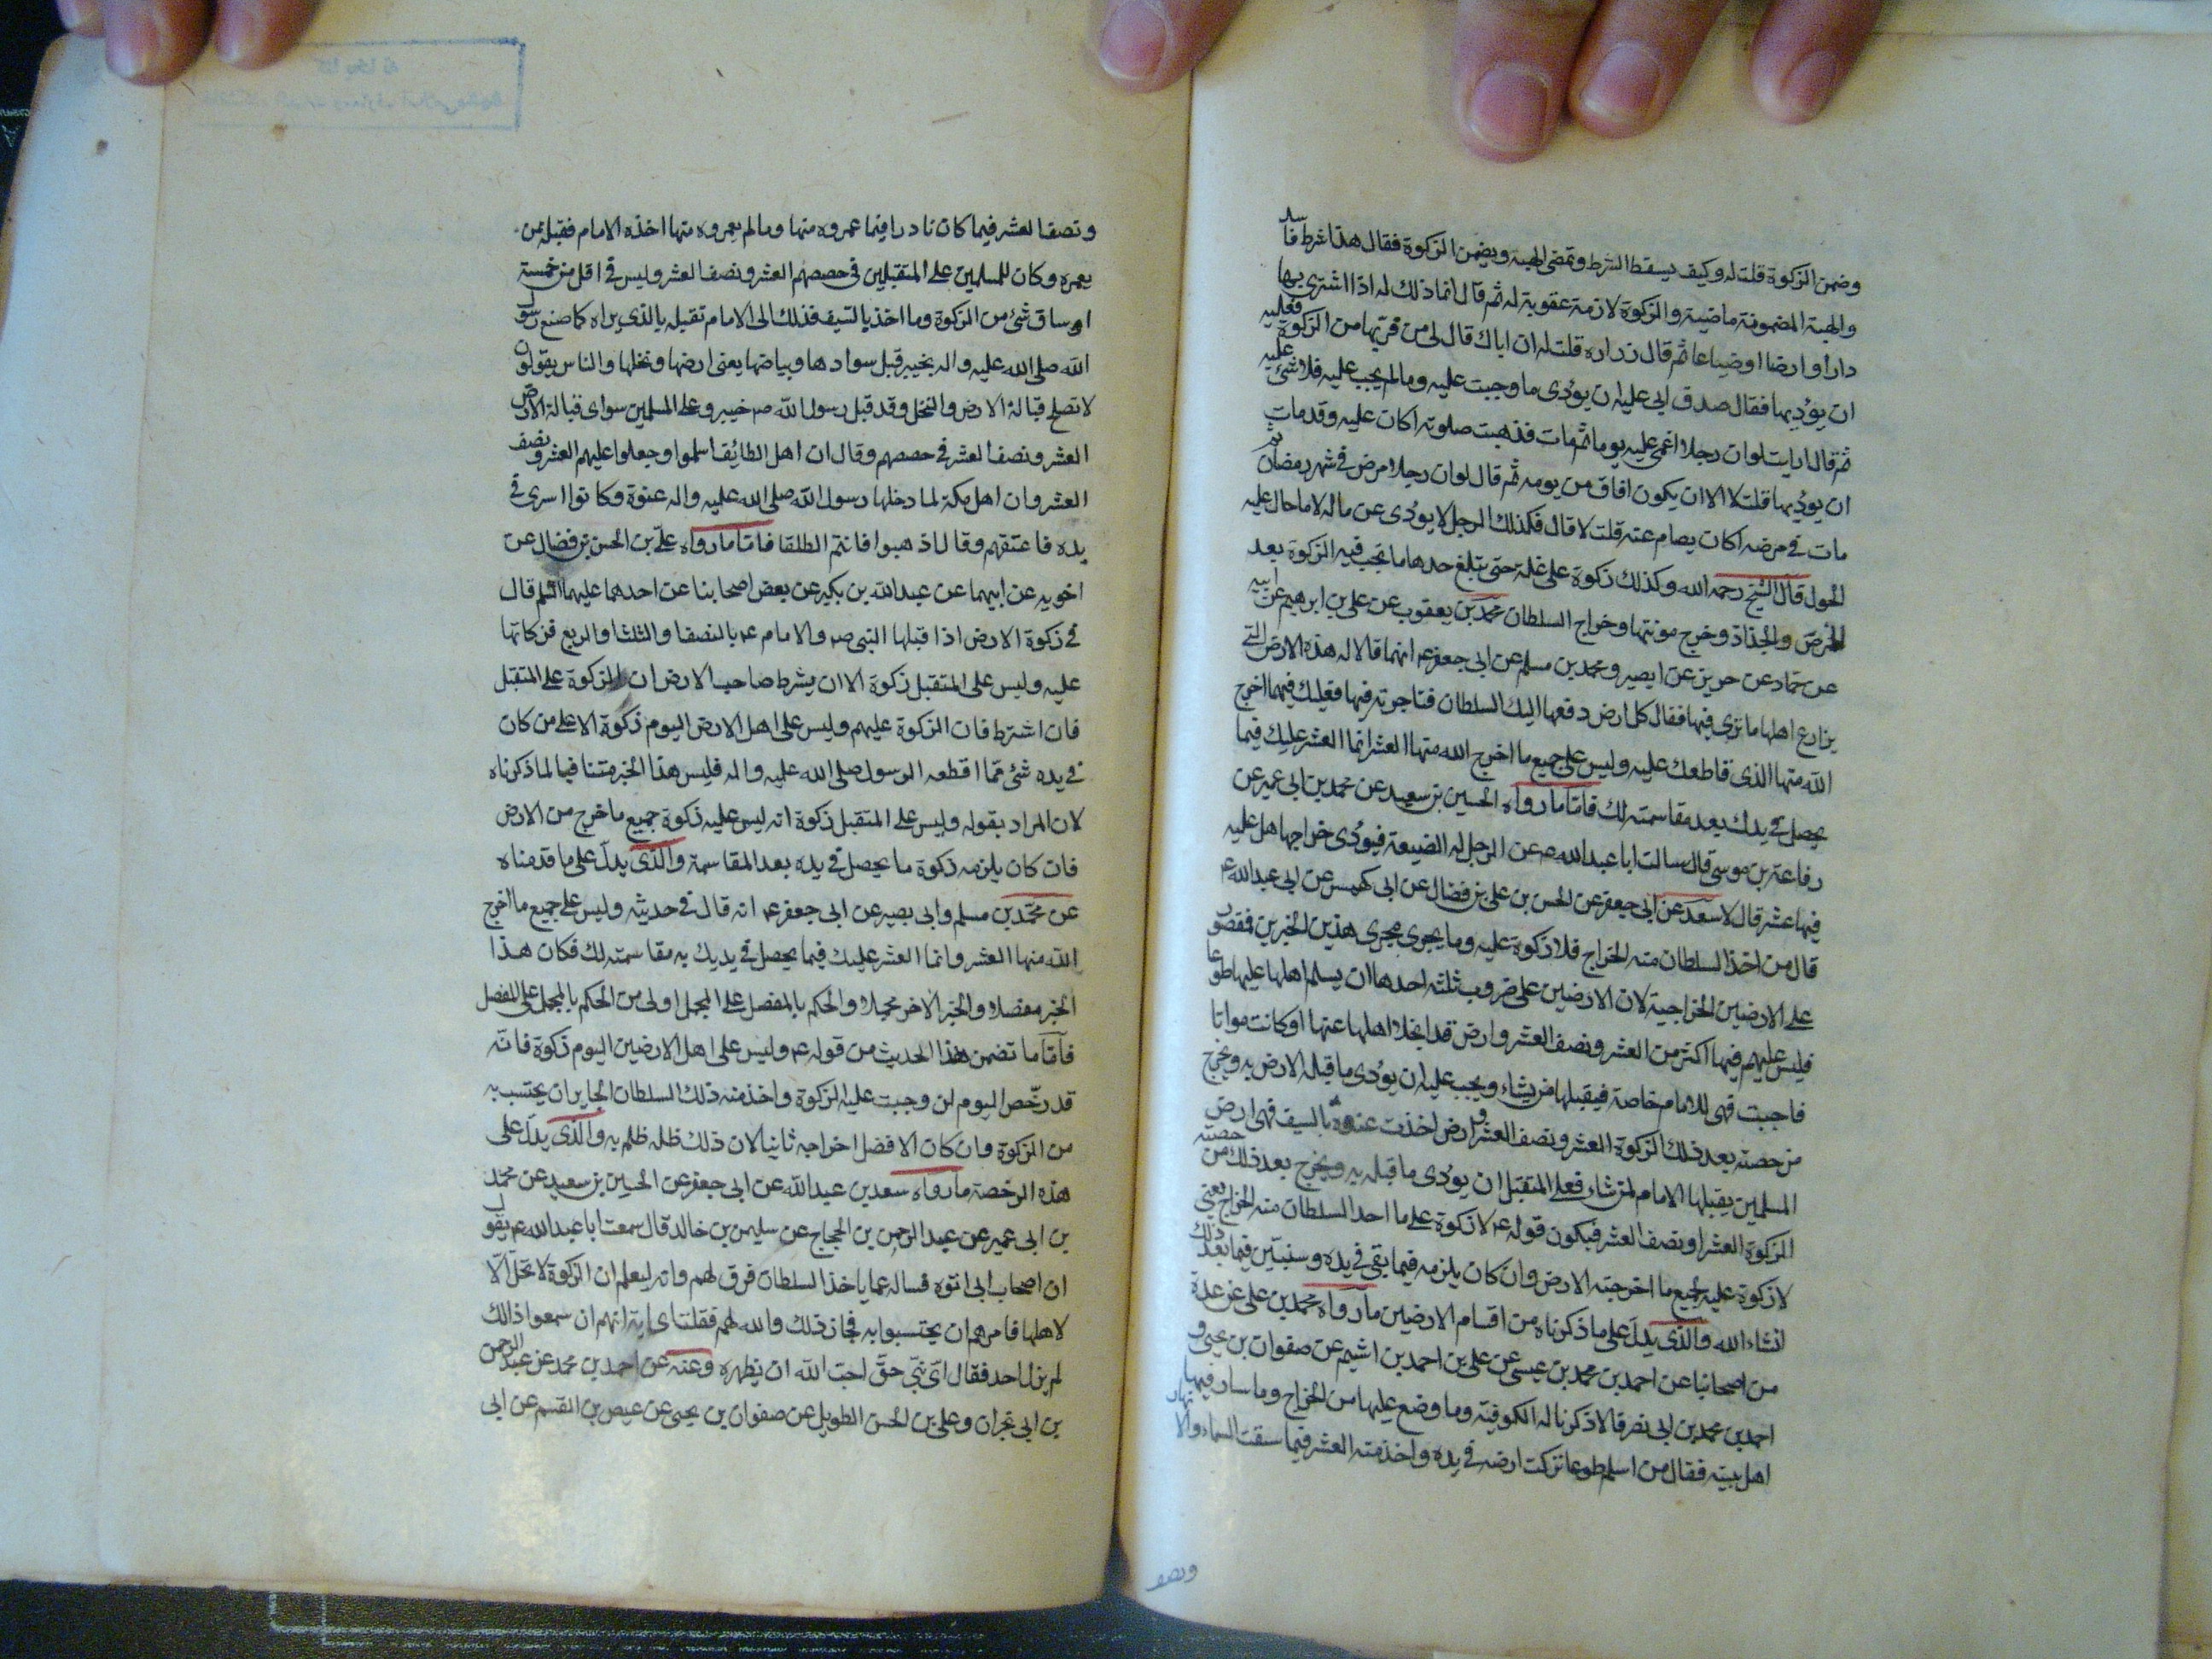 وضمن الزكوة قلت له وكيف يسقط الشرط وتمضى الهبة ويضمن الزكوة فقال هذا شرط فاسد
والهبة المضمونة ماضية والزكوة لازمة عقوبة له ثم قال انما ذلك له اذا اشترى بها
دارا او ارضا او ضياعا ثم قال زراره قلت له ان اباك قال لى من فر بها من الزكوة فعليه
ان يؤديها فقال صدق ابى عليه ان يؤدى ما وجبت عليه وما لم يجب عليه فلا شئ عليه
ثم قال ارايت لو ان رجلا اغمى عليه يوما ثم مات فذهبت صلوته اكان عليه وقد مات
ان يؤديها قلت لا الا ان يكون افاق من يومه ثم قال لو ان رجلا مرض فى شهر رمضان ثم
مات فى مرضه اكان يصام عنه قلت لا قال فكذلك الرجل لا يؤدى عن ماله الا ما حال عليه
الحول قال الشيخ رحمه الله وكذلك زكوة على غلة حتى تبلغ حدها ما تجب فيه الزكوة بعد
الخرص والجذاذ وخرج مونتها وخراج السلطان محمد بن يعقوب عن على بن ابرهيم عن ابيه
عن حماد عن حريز عن ابصير ومحمد بن مسلم عن ابى جعفر ع انهما قالا له هذه الارض التى
يزارع اهلها ما ترى فيها فقال كل ارض دفعها اليك السلطان فتاجرته فيها فعليك فيما اخرج
الله منها الذى قاطعك عليه وليس على جميع ما اخرج الله منها العشر انما العشر عليك فيما
يحصل فى يدك بعد مقاسمته لك فاما ما رواه الحسين بن سعيد عن محمد بن ابى عمير عن
رفاعة بن موسى قال سالت ابا عبد الله ع عن الرجل له الضيعة فيؤدى خراجها هل عليه
فيها عشر قال لا سعد عن ابى جعفر عن الحسن بن على بن فضال عن ابى كهمس عن ابى عبد الله ع
قال من اخذ السلطان منه الخراج فلا زكوة عليه وما يجرى مجرى هذين الخبرين فمقصور
على الارضين الخراجية لان الارضين على ضروب ثلثة احدها ان يسلم اهلها عليها طوعا
فليس عليهم فيها اكثر من العشر ونصف العشر وارض قد انجلا اهلها عنها او كانت مواتا
فاحيت فهى للامام خاصة فيقبلها من يشاء ويجب عليه ان يؤدى ما قبله الارض به ويخرج
من حصته بعد ذلك الزكوة العشر ونصف العشر وارض اخذت عنوة بالسيف فهى ارض
المسلمين يقبلها الامام لمن شاء فعلى المتقبل ان يؤدى ما قبله به ويخرج بعد ذلك من حصته
الزكوة العشر او نصف العشر فيكون قوله ع لا زكوة على ما احد السلطان منه الخراج يعنى
لا زكوة عليه لجميع ما اخرجته الارض وان كان يلزمه فيما بقى فى يده وسنبين فيما بعد ذلك
انشاء الله والذى يدل على ما ذكرناه من اقسام الارضين ما رواه محمد بن على عن عدة
من اصحابنا عن احمد بن محمد بن عيسى عن على بن احمد بن اشيم عن صفوان بن يحيى و
احمد بن محمد بن ابى نصر قالا ذكرنا له الكوفة وما وضع عليها من الخراج وما سار فيها
اهل بيته فقال من اسلم طوعا تركت ارضه فى يده واخذ منه العشر فيما سقت السماء والانهار
ونصف
ونصف العشر فيما كان نادرا فيما عمروه منها وما لم يعمروه منها اخذه الامام فقبله ممن
يعمره وكان للمسلمين على المتقبلين فى حصصهم العشر ونصف العشر وليس فى اقل من خمسة
اوساق شئ من الزكوة وما اخذ بالسيف فذلك الى الامام تقبله بالذى يراه كما صنع رسول
الله صلى الله عليه واله بخيبر قبل سوادها وبياضها يعنى ارضها ونخلها والناس يقولون
لا تصلح قبالة الارض والنخل وقد قبل رسول الله ص خيبر وعلى المسلمين سواى قبالة الارض
العشر ونصف العشر فى حصصهم وقال ان اهل الطائف اسلموا وجعلوا عليهم العشر ونصف
العشر وان اهل مكة لما دخلها رسول الله صلى الله عليه واله عنوة وكانوا اسرى فى
يده فاعتقهم وقال اذهبوا فانتم الطلقا فاما ما رواه على بن الحسن بن فضال عن
اخويه عن ابيهما عن عبد الله بن بكير عن بعض اصحابنا عن احدهما عليهما السلم قال
فى زكوة الارض اذا قبلها النبى ص والامام ع بالنصف والثلث والربع فزكاتها
عليه وليس على المتقبل زكوة الا ان يشرط صاحب الارض ان الزكوة على المتقبل
فان اشترط فان الزكوة عليهم وليس على اهل الارض اليوم زكوة الا على من كان
فى يده شئ مما اقطعه الرسول صلى الله عليه واله فليس هذا الخبر منافيا لما ذكرناه
لان المراد بقوله وليس على المتقبل زكوة انه ليس عليه زكوة جميع ما خرج من الارض
فان كان يلزمه زكوة ما يحصل فى يده بعد المقاسمة والذى يدل على ما قدمناه
عن محمد بن مسلم وابى بصير عن ابى جعفر ع انه قال فى حديثه وليس على جميع ما اخرج
الله منها العشر وانما العشر عليك فيما يحصل فى يديك به مقاسمته لك فكان هذا
الخبر مفصلا والخبر الاخر مجملا والحكم بالمفصل على المجمل اولى من الحكم بالمجمل على المفصل
فاما ما تضمن هذا الحديث من قوله ع وليس على اهل الارضين اليوم زكوة فانه
قد رخص اليوم لمن وجبت عليه الزكوة واخذ منه ذلك السلطان الجاير ان يحتسب به
من الزكوة وان كان الافضل اخراجه ثانيا لان ذلك ظلم ظلم به والذى يدل على
هذه الرخصة ما رواه سعد بن عبد الله عن ابى جعفر عن الحسين بن سعيد عن محمد
بن ابى عمير عن عبد الرحمن بن الحجاج عن سليمن بن خالد قال سمعت ابا عبد الله ع يقول
ان اصحاب ابى اتوه فساله عما ياخذ السلطان فرق لهم وانه ليعلم ان الزكوة لا تحل الا
لاهلها فامرهم ان يحتسبوا به فجاز ذلك والله لهم فقلت اى ابة انهم ان سمعوا ذالك
لم يزك احد فقال اى بنى حق احب الله ان يظهره وعنه عن احمد بن محمد عن عبد الرحمن
بن ابى نجران وعلى بن الحسن الطويل عن صفوان بن يحيى عن عيص بن القسم عن ابى